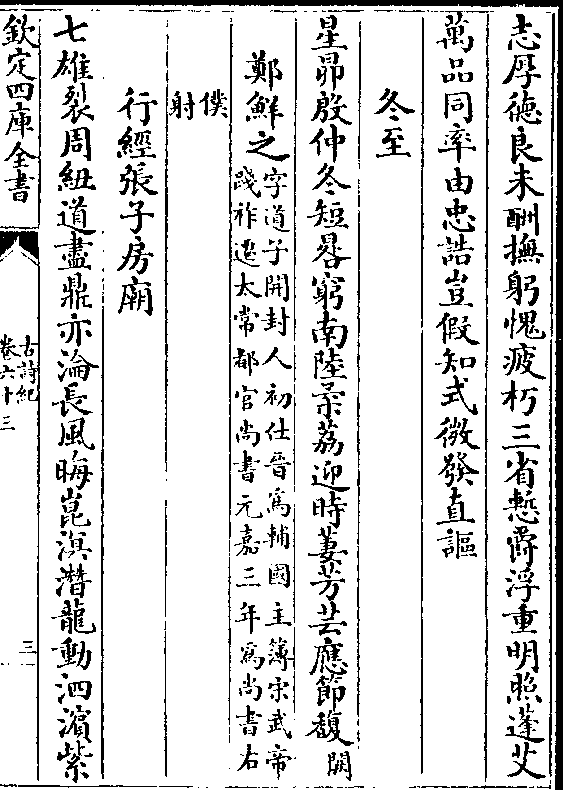 志厚德良未酬撫躬愧疲朽三省慙爵浮重明照蓬艾
萬品同率由忠誥豈假知式微發直謳
冬至
星昴殷仲冬短晷窮南陸柔荔迎時萋芳芸應節馥闕
鄭鮮之字道子開封人初仕晉為輔國主簿宋武帝
踐祚遷太常都官尚書元嘉三年為尚書右
僕
射
行經張子房廟
七雄裂周紐道盡鼎亦淪長風晦崑溟潛龍動泗濱紫
欽定四庫全書
古詩紀
卷六十三
三